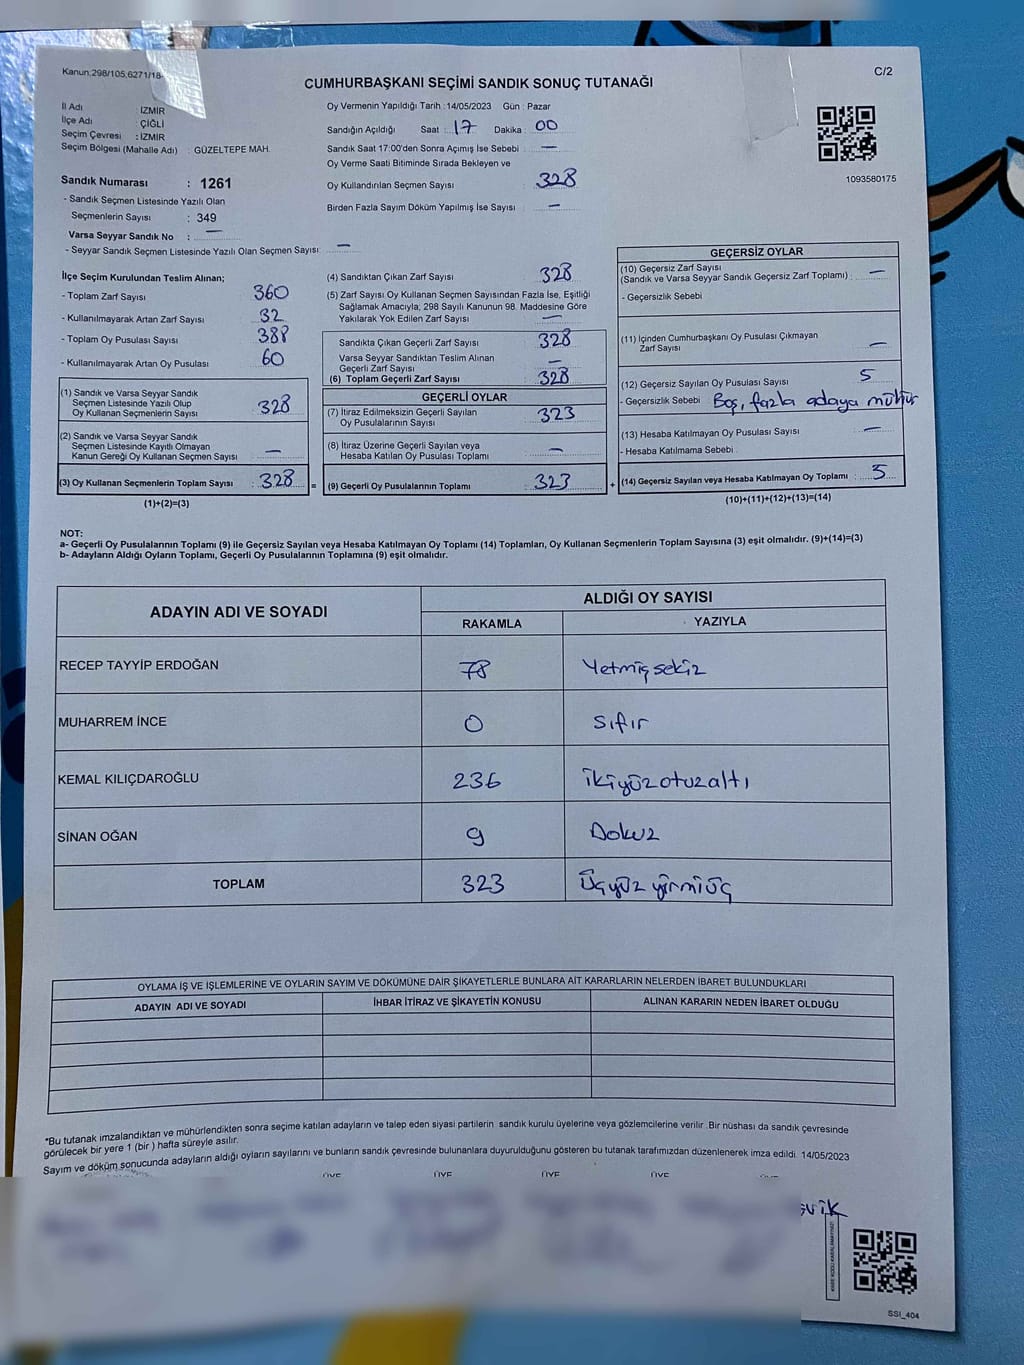 Kanun:298/105;6271/18-
C/2
CUMHURBAŞKANI SEÇİMİ SANDIK SONUÇ TUTANAĞI
İl Adı : İZMİR
İlçe Adı : ÇİĞLİ
Seçim Çevresi : İZMİR
Seçim Bölgesi (Mahalle Adı) : GÜZELTEPE MAH.
Sandık Numarası : 1261
- Sandık Seçmen Listesinde Yazılı Olan
Seçmenlerin Sayısı : 349
Varsa Seyyar Sandık No : —
- Seyyar Sandık Seçmen Listesinde Yazılı Olan Seçmen Sayısı: —
Oy Vermenin Yapıldığı Tarih : 14/05/2023 Gün : Pazar
Sandığın Açıldığı Saat : 17 Dakika : 00
Sandık Saat 17:00'den Sonra Açımış İse Sebebi : —
Oy Verme Saati Bitiminde Sırada Bekleyen ve
Oy Kullandırılan Seçmen Sayısı : 328
Birden Fazla Sayım Döküm Yapılmış İse Sayısı : —
1093580175
İlçe Seçim Kurulundan Teslim Alınan;
- Toplam Zarf Sayısı 360
- Kullanılmayarak Artan Zarf Sayısı 32
- Toplam Oy Pusulası Sayısı 388
- Kullanılmayarak Artan Oy Pusulası 60
(1) Sandık ve Varsa Seyyar Sandık
Seçmen Listesinde Yazılı Olup
Oy Kullanan Seçmenlerin Sayısı : 328
(2) Sandık ve Varsa Seyyar Sandık
Seçmen Listesinde Kayıtlı Olmayan
Kanun Gereği Oy Kullanan Seçmen Sayısı : —
(3) Oy Kullanan Seçmenlerin Toplam Sayısı : 328
(1)+(2)=(3)
(4) Sandıktan Çıkan Zarf Sayısı 328
(5) Zarf Sayısı Oy Kullanan Seçmen Sayısından Fazla İse, Eşitliği
Sağlamak Amacıyla, 298 Sayılı Kanunun 98. Maddesine Göre
Yakılarak Yok Edilen Zarf Sayısı —
Sandıkta Çıkan Geçerli Zarf Sayısı 328
Varsa Seyyar Sandıktan Teslim Alınan
Geçerli Zarf Sayısı —
(6) Toplam Geçerli Zarf Sayısı 328
GEÇERLİ OYLAR
(7) İtiraz Edilmeksizin Geçerli Sayılan
Oy Pusulalarının Sayısı 323
(8) İtiraz Üzerine Geçerli Sayılan veya
Hesaba Katılan Oy Pusulası Toplamı —
= (9) Geçerli Oy Pusulalarının Toplamı 323
GEÇERSİZ OYLAR
(10) Geçersiz Zarf Sayısı
(Sandık ve Varsa Seyyar Sandık Geçersiz Zarf Toplamı) : —
- Geçersizlik Sebebi
(11) İçinden Cumhurbaşkanı Oy Pusulası Çıkmayan
Zarf Sayısı —
(12) Geçersiz Sayılan Oy Pusulası Sayısı 5
- Geçersizlik Sebebi Boş, fazla adaya mühür
(13) Hesaba Katılmayan Oy Pusulası Sayısı —
- Hesaba Katılmama Sebebi
+ (14) Geçersiz Sayılan veya Hesaba Katılmayan Oy Toplamı : 5
(10)+(11)+(12)+(13)=(14)
NOT:
a- Geçerli Oy Pusulalarının Toplamı (9) ile Geçersiz Sayılan veya Hesaba Katılmayan Oy Toplamı (14) Toplamları, Oy Kullanan Seçmenlerin Toplam Sayısına (3) eşit olmalıdır. (9)+(14)=(3)
b- Adayların Aldığı Oyların Toplamı, Geçerli Oy Pusulalarının Toplamına (9) eşit olmalıdır.
ADAYIN ADI VE SOYADI
ALDIĞI OY SAYISI
RAKAMLA YAZIYLA
RECEP TAYYİP ERDOĞAN 78 Yetmişsekiz
MUHARREM İNCE 0 Sıfır
KEMAL KILIÇDAROĞLU 236 İkiyüzotuzaltı
SİNAN OĞAN 9 Dokuz
TOPLAM 323 Üçyüzyirmiüç
OYLAMA İŞ VE İŞLEMLERİNE VE OYLARIN SAYIM VE DÖKÜMÜNE DAİR ŞİKAYETLERLE BUNLARA AİT KARARLARIN NELERDEN İBARET BULUNDUKLARI
ADAYIN ADI VE SOYADI İHBAR İTİRAZ VE ŞİKAYETİN KONUSU ALINAN KARARIN NEDEN İBARET OLDUĞU
*Bu tutanak imzalandıktan ve mühürlendikten sonra seçime katılan adayların ve talep eden siyasi partilerin sandık kurulu üyelerine veya gözlemcilerine verilir. Bir nüshası da sandık çevresinde
görülecek bir yere 1 (bir ) hafta süreyle asılır.
Sayım ve döküm sonucunda adayların aldığı oyların sayılarını ve bunların sandık çevresinde bulunanlara duyurulduğunu gösteren bu tutanak tarafımızdan düzenlenerek imza edildi. 14/05/2023
ÜYE ÜYE ÜYE ÜYE
SSI_404